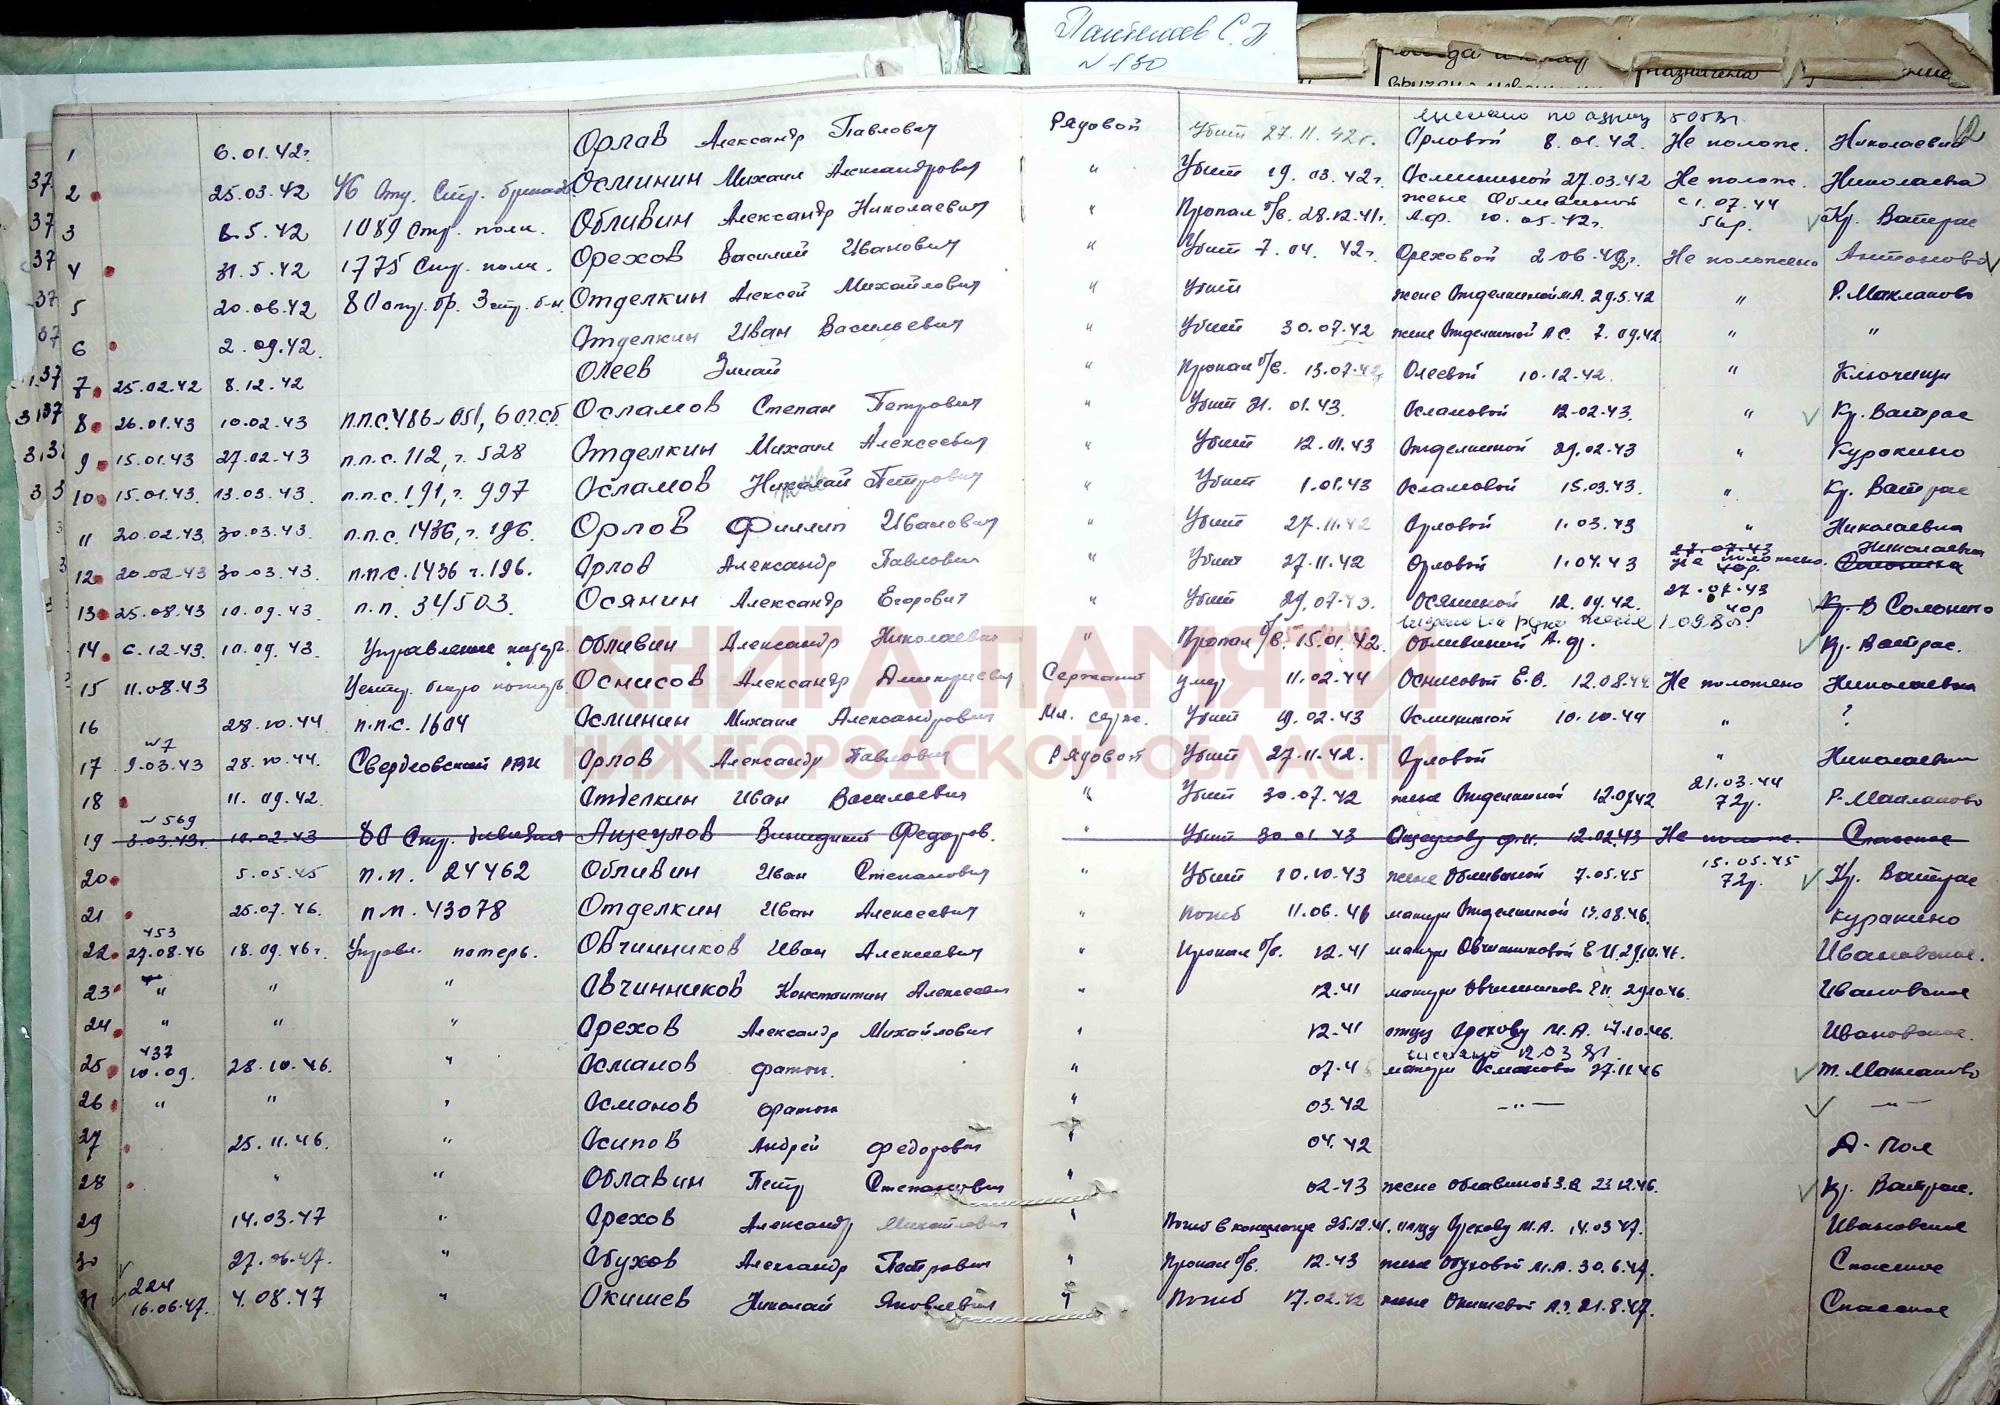 Пантелеев С. П.
N-130
назначена
1 6.01.42г. Орлов Александр Павлович Рядовой Убит 27.11.42г. Орловой 8.01.42. Не полож. Николаевка
37 2 25.03.42 46 Отд. Стр. бригада Осминин Михаил Александрович " Убит 19.03.42г. Осмининой 27.03.42 Не полож. Николаевка
37 3 8.5.42 1089 Стр. полк. Обливин Александр Николаевич " Пропал б/в. 28.12.41г. жене Обливиной А.Ф. 10.05.42г. с 1.07.44 56р. Кр. Ватрас
37 4 31.5.42 1775 Стр. полк. Орехов Василий Иванович " Убит 7.04.42г. Ореховой 2.06.42г. Не положено Антоново
37 5 20.06.42 80 отд. бр. 3 стр. б-н. Отделкин Алексей Михайлович " Убит жене Отделкиной М.А. 29.5.42 " Р. Маклаково
37 6 2.09.42. Отделкин Иван Васильевич " Убит 30.07.42 жене Отделкиной А.С. 7.09.42. " "
37 7 25.02.42 8.12.42 Олеев " Пропал б/в. 13.07.42г. Олеевой 10.12.42. " Ключищи
37 8 26.01.43 10.02.43 п.п.с. 486-051, 60 гсб Осламов Степан Петрович " Убит 21.01.43. Осламовой 12.02.43. " Кр. Ватрас
9 15.01.43 27.02.43 п.п.с. 112, г. 528 Отделкин Михаил Алексеевич " Убит 12.01.43 Отделкиной 29.02.43 " Куракино
10 15.01.43. 13.03.43. п.п.с. 191, г. 997 Осламов Николай Петрович " Убит 1.01.43 Осламовой 15.03.43. " Кр. Ватрас
11 20.02.43 30.03.43. п.п.с. 1436, г. 196. Орлов Филлип Иванович " Убит 27.11.42 Орловой 1.03.43 " Николаевка
12 20.02.43 30.03.43. п.п.с. 1436 г. 196. Орлов Александр Павлович " Убит 27.11.42 Орловой 1.04.43 27.07.43 Не положено. 40р. Николаевка
13 25.08.43 10.09.43 п.п. 34503. Осянин Александр Егорович " Убит 29.07.43. Осяниной 12.09.42. 27.07.43 40р Кр. В Солонино
14 6.12.43 10.09.43. Управление потерь. Обливин Александр Николаевич " Пропал б/в. 15.01.42. Обливиной А.Ф. Кр. Ватрас.
15 11.08.43 Центр. бюро потерь. Оснисов Александр Дмитриевич Сержант умер 11.02.44 Оснисовой Е.В. 12.08.44. Не положено Николаевка
16 28.10.44. п.п.с. 1604 Осминин Михаил Александрович Мл. серж. Убит 19.02.43 Осмининой 10.10.44 " ?
17 N7 9.03.43 28.10.44. Свердловский РВК Орлов Александр Павлович Рядовой Убит 27.11.42. Орловой " Николаевка
18 11.09.42. Отделкин Иван Васильевич " Убит 30.07.42 жене Отделкиной 12.09.42 21.03.44 72р. Р. Маклаково
19 N569 3.03.43г. 10.02.43 80 Стр. дивизия Ащеулов Федоров. " Убит 30.01.43 Ащеулову Ф.Н. 12.02.43 Не полож. Спасское
20 5.05.45 п.п. 24462 Обливин Иван Степанович " Убит 10.10.43 жене Обливиной 7.05.45 15.05.45 72р. Кр. Ватрас
21 25.07.46. п.п. 43078 Отделкин Иван Алексеевич " Погиб 11.06.46 матери Отделкиной 17.08.46. Куракино
22 453 27.08.46 18.09.46г. Управл. потерь. Овчинников Иван Алексеевич " Пропал б/в. 12.41 матери Овчинниковой Е.И. 29.10.46. Ивановское.
23 " " " Овчинников Константин Алексеевич " 12.41 матери Овчинниковой Е.И. 29.10.46. Ивановское
24 " " " Орехов Александр Михайлович " 12.41 отцу Орехову М.А. 17.10.46. Ивановское.
25 437 10.09. 28.10.46. " Османов " 07.4 матери Османовой 27.11.46 т. Маклаково
26 " " " Османов " 03.42 — " — — " —
27 25.11.46. " Осипов Андрей Федорович " 04.42 А-Пол
28 " " Облавин Петр Степанович " 02.43 жене Облавиной З.В. 23.12.46. Кр. Ватрас.
29 14.03.47 " Орехов Александр Михайлович " Погиб в концлагере 25.12.41. отцу Орехову М.А. 14.03.47. Ивановское
30 27.06.47. " Обухов Александр Петрович " Пропал б/в. 12.43 жене Обуховой М.А. 30.6.47. Спасское
31 224 16.06.47. 4.08.47 " Окишев Николай Яковлевич " Погиб 17.02.42 жене Окишевой А.З. 21.8.47. Спасское
КНИГА ПАМЯТИ
НИЖЕГОРОДСКОЙ ОБЛАСТИ